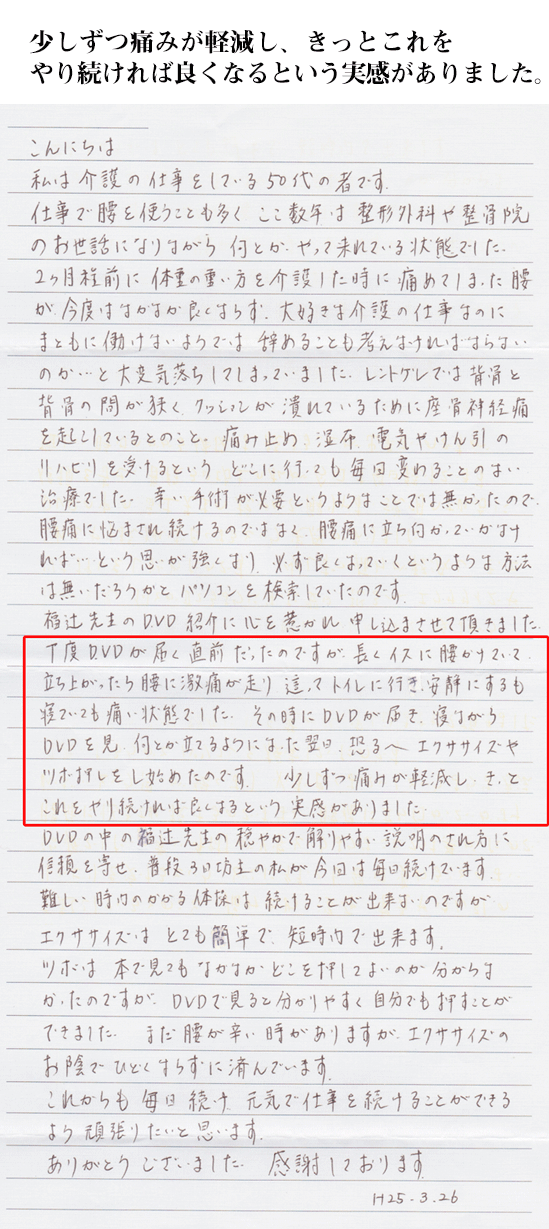 少しずつ痛みが軽減し、きっとこれを
やり続ければ良くなるという実感がありました。
こんにちは
私は介護の仕事をしている50代の者です。
仕事で腰を使うことも多く ここ数年は 整形外科や整骨院
のお世話になりながら 何とか、やって来れている状態でした。
2ヶ月程前に 体重の重い方を介護した時に 痛めてしまった腰
が、今度はなかなか良くならず、大好きな介護の仕事なのに
まともに働けないようでは 辞めることも考えなければならない
のか…と大変気落ちしてしまっていました。レントゲンでは背骨と
背骨の間が狭く、クッションが 潰れているために座骨神経痛
を起こしているとのこと。痛み止め、湿布、電気やけん引の
リハビリを受けるという どこに行っても毎回変わることのない
治療でした。幸い手術が必要というようなことでは無かったので、
腰痛に悩まされ続けるのではなく、腰痛に立ち向かっていかなけ
れば…という思いが強くなり、必ず良くなっていくというような方法
は無いだろうかと パソコンを検索していたのです。
福辻先生のDVD紹介に心を惹かれ 申し込まさせて頂きました。
丁度DVDが届く直前だったのですが、長くイスに腰かけていて、
立ち上がったら腰に激痛が走り 這ってトイレに行き、安静にするも
寝ていても痛い状態でした。その時にDVDが届き、寝ながら
DVDを見、何とか立てるようになった翌日、恐る〱 エクササイズや
ツボ押しをし始めたのです。 少しずつ痛みが軽減し、きっと
これをやり続ければ良くなるという 実感がありました。
DVDの中の福辻先生の穏やかで解りやすい 説明のされ方に
信頼を寄せ、普段3日坊主の私が今回は毎日続けています。
難しい時間のかかる体操は 続けることが出来ないのですが
エクササイズは とても簡単で、短時間で出来ます。
ツボは 本で見てもなかなか どこを押してよいのか分からな
かったのですが、DVDで見ると分かりやすく自分でも押すことが
できました。 まだ腰が辛い時がありますが、エクササイズの
お陰で ひどくならずに済んでいます。
これからも 毎日 続け 元気で仕事を続けることができる
よう 頑張りたいと思います。
ありがとう ございました。 感謝しております。
H25.3.26